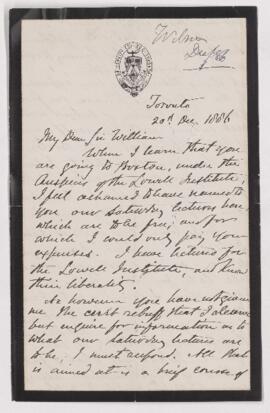 Wilson
Dec/86
Toronto
20th Dec. 1886
My Dear Sir William
When I learn that you
are going to Boston, under the
Auspices of the Lowell Institute,
I feel ashamed to have named to
you our Saturday lectures here,
which are to be free; and for
which I could only pay your
expenses. I have lectured for
the Lowell Institute, and know
their liberality.
As however you have not given
me the rebuff that I
but enquire for information as to
what our Saturday lectures are
to be, I must respond. All that
is aimed at is a brief course of